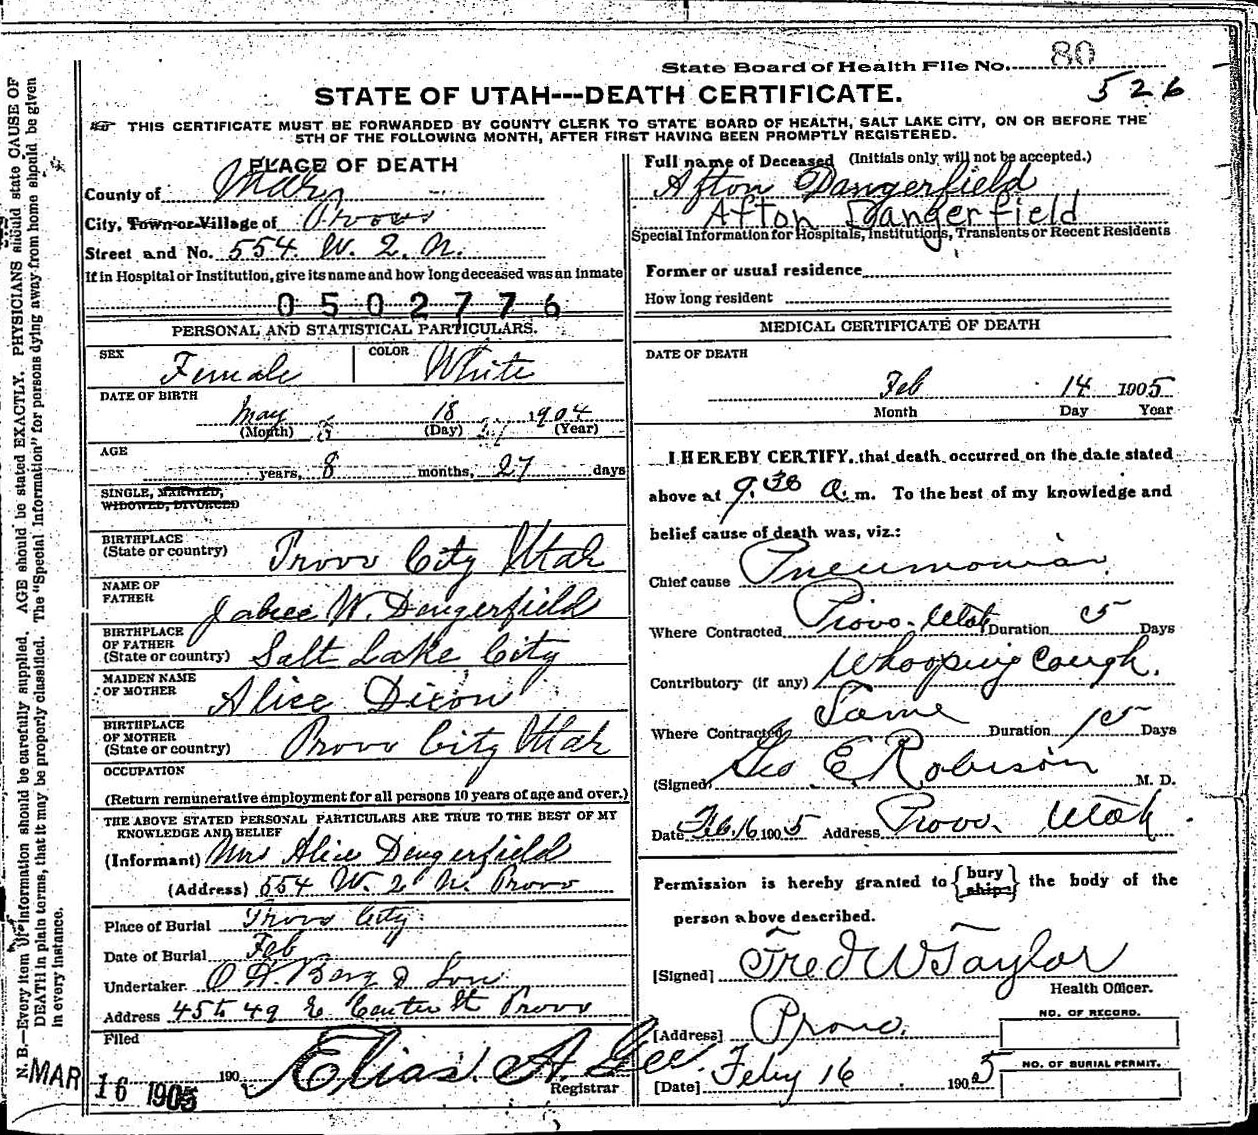 State Board of Health File No. 80
526
STATE OF UTAH---DEATH CERTIFICATE.
THIS CERTIFICATE MUST BE FORWARDED BY COUNTY CLERK TO STATE BOARD OF HEALTH, SALT LAKE CITY, ON OR BEFORE THE
5TH OF THE FOLLOWING MONTH, AFTER FIRST HAVING BEEN PROMPTLY REGISTERED.
PLACE OF DEATH
County of
City, Town or Village of Provo
Street and No. 554. W. 2. N.
If in Hospital or Institution, give its name and how long deceased was an inmate
0502776
PERSONAL AND STATISTICAL PARTICULARS.
SEX Female COLOR White
DATE OF BIRTH
May 18 1904
(Month) (Day) (Year)
AGE
years, 8 months, 27 days
SINGLE, MARRIED,
WIDOWED, DIVORCED
BIRTHPLACE
(State or country) Provo City Utah
NAME OF
FATHER Jabez W. Dangerfield
BIRTHPLACE
OF FATHER
(State or country) Salt Lake City
MAIDEN NAME
OF MOTHER Alice Dixon
BIRTHPLACE
OF MOTHER
(State or country) Provo City Utah
OCCUPATION
(Return remunerative employment for all persons 10 years of age and over.)
THE ABOVE STATED PERSONAL PARTICULARS ARE TRUE TO THE BEST OF MY
KNOWLEDGE AND BELIEF
(Informant) Mrs Alice Dangerfield
(Address) 554 W. 2 N. Provo
Place of Burial Provo City
Date of Burial Feb
Undertaker O. H. Berg & Son
Address 45 to 49 E Center St Provo
Filed
MAR 16 1905 190
Elias A. Gee.
Registrar
Full name of Deceased (Initials only will not be accepted.)
Afton Dangerfield
Afton Dangerfield
Special Information for Hospitals, Institutions, Transients or Recent Residents
Former or usual residence
How long resident
MEDICAL CERTIFICATE OF DEATH
DATE OF DEATH
Feb 14 1905
Month Day Year
I HEREBY CERTIFY, that death occurred on the date stated
above at 9.30 A. m. To the best of my knowledge and
belief cause of death was, viz.:
Chief cause Pneumonia.
Where Contracted Provo. Utah Duration 5 Days
Contributory (if any) Whooping Cough.
Where Contracted Same Duration 15 Days
(Signed) Geo E Robison M. D.
Date Feb. 16 1905 Address Provo. Utah.
Permission is hereby granted to {bury ship} the body of the
person above described.
[Signed] Fred W Taylor
Health Officer.
[Address] Provo.
[Date] Feby 16 1905
NO. OF RECORD.
NO. OF BURIAL PERMIT.
N. B.—Every item of information should be carefully supplied. AGE should be stated EXACTLY. PHYSICIANS should state CAUSE OF
DEATH in plain terms, that it may be properly classified. The "Special Information" for persons dying away from home should be given
in every instance.